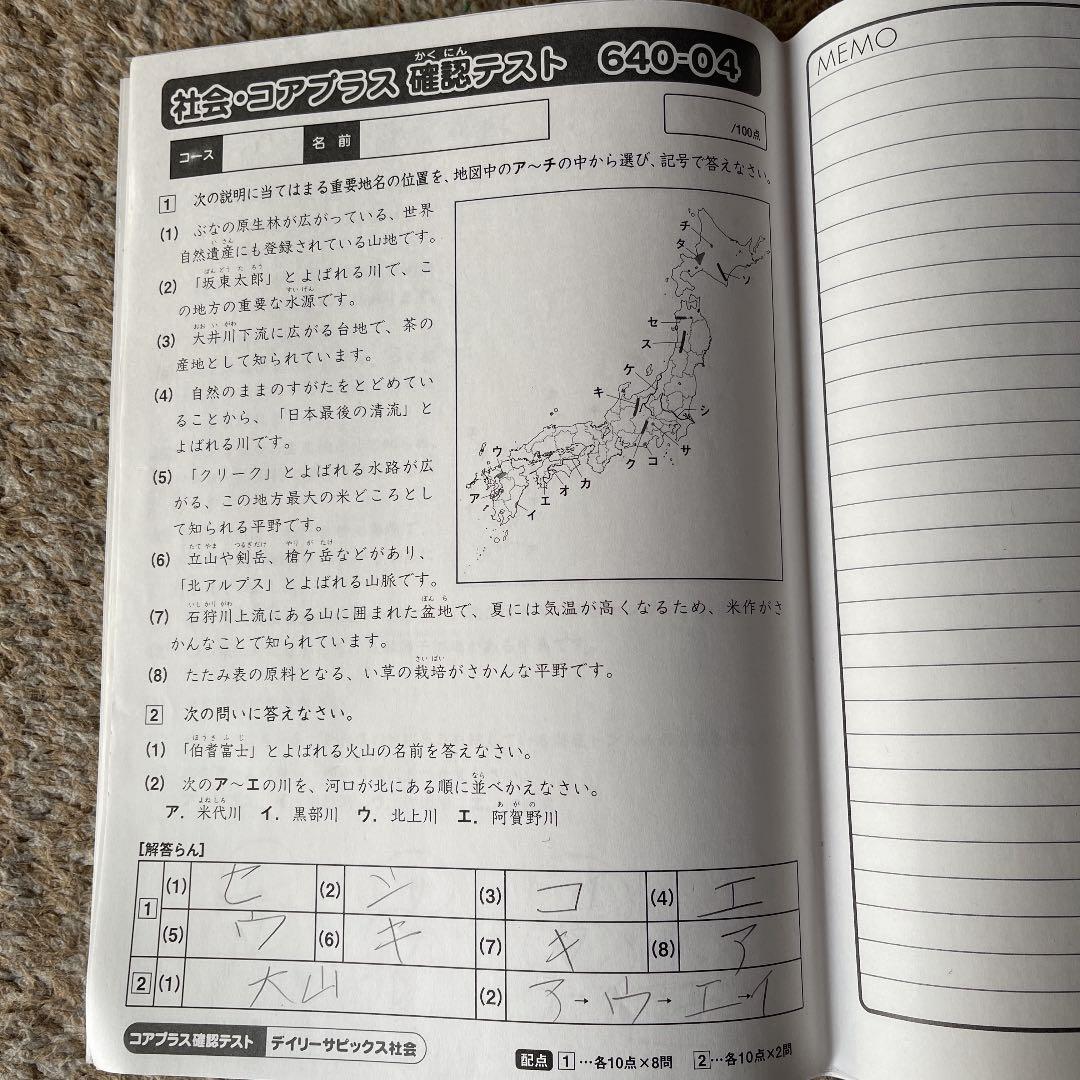 社会・コアプラス 確認テスト 640-04
かくにん
MEMO
コース 名前 /100点
1 次の説明に当てはまる重要地名の位置を、地図中のア〜チの中から選び、記号で答えなさい。
(1) ぶなの原生林が広がっている、世界
自然遺産にも登録されている山地です。
いさん
(2) 「坂東太郎」とよばれる川で、こ
ばんどうたろう
の地方の重要な水源です。
すいげん
(3) 大井川下流に広がる台地で、茶の
おおいがわ
産地として知られています。
(4) 自然のままのすがたをとどめてい
ることから、「日本最後の清流」と
よばれる川です。
(5) 「クリーク」とよばれる水路が広
がる、この地方最大の米どころとし
て知られる平野です。
(6) 立山や剣岳、槍ケ岳などがあり、
たてやま つるぎだけ やりがたけ
「北アルプス」とよばれる山脈です。
(7) 石狩川上流にある山に囲まれた盆地で、夏には気温が高くなるため、米作がさ
いしかりがわ ぼんち
かんなことで知られています。
(8) たたみ表の原料となる、い草の栽培がさかんな平野です。
さいばい
チ
タ
ソ
セ
ス
ケ
キ
シ
サ
コ
ク
ウ
カ
オ
エ
ア
イ
2 次の問いに答えなさい。
(1) 「伯耆富士」とよばれる火山の名前を答えなさい。
ほうきふじ
(2) 次のア〜エの川を、河口が北にある順に並べかえなさい。
なら
ア. 米代川 イ. 黒部川 ウ. 北上川 エ. 阿賀野川
よねしろ あがの
[解答らん]
1 (1) セ (2) シ (3) コ (4) エ
(5) ウ (6) キ (7) キ (8) ア
2 (1) 大山 (2) ア→ウ→エ→イ
コアプラス確認テスト デイリーサピックス社会
配点 1…各10点×8問 2…各10点×2問